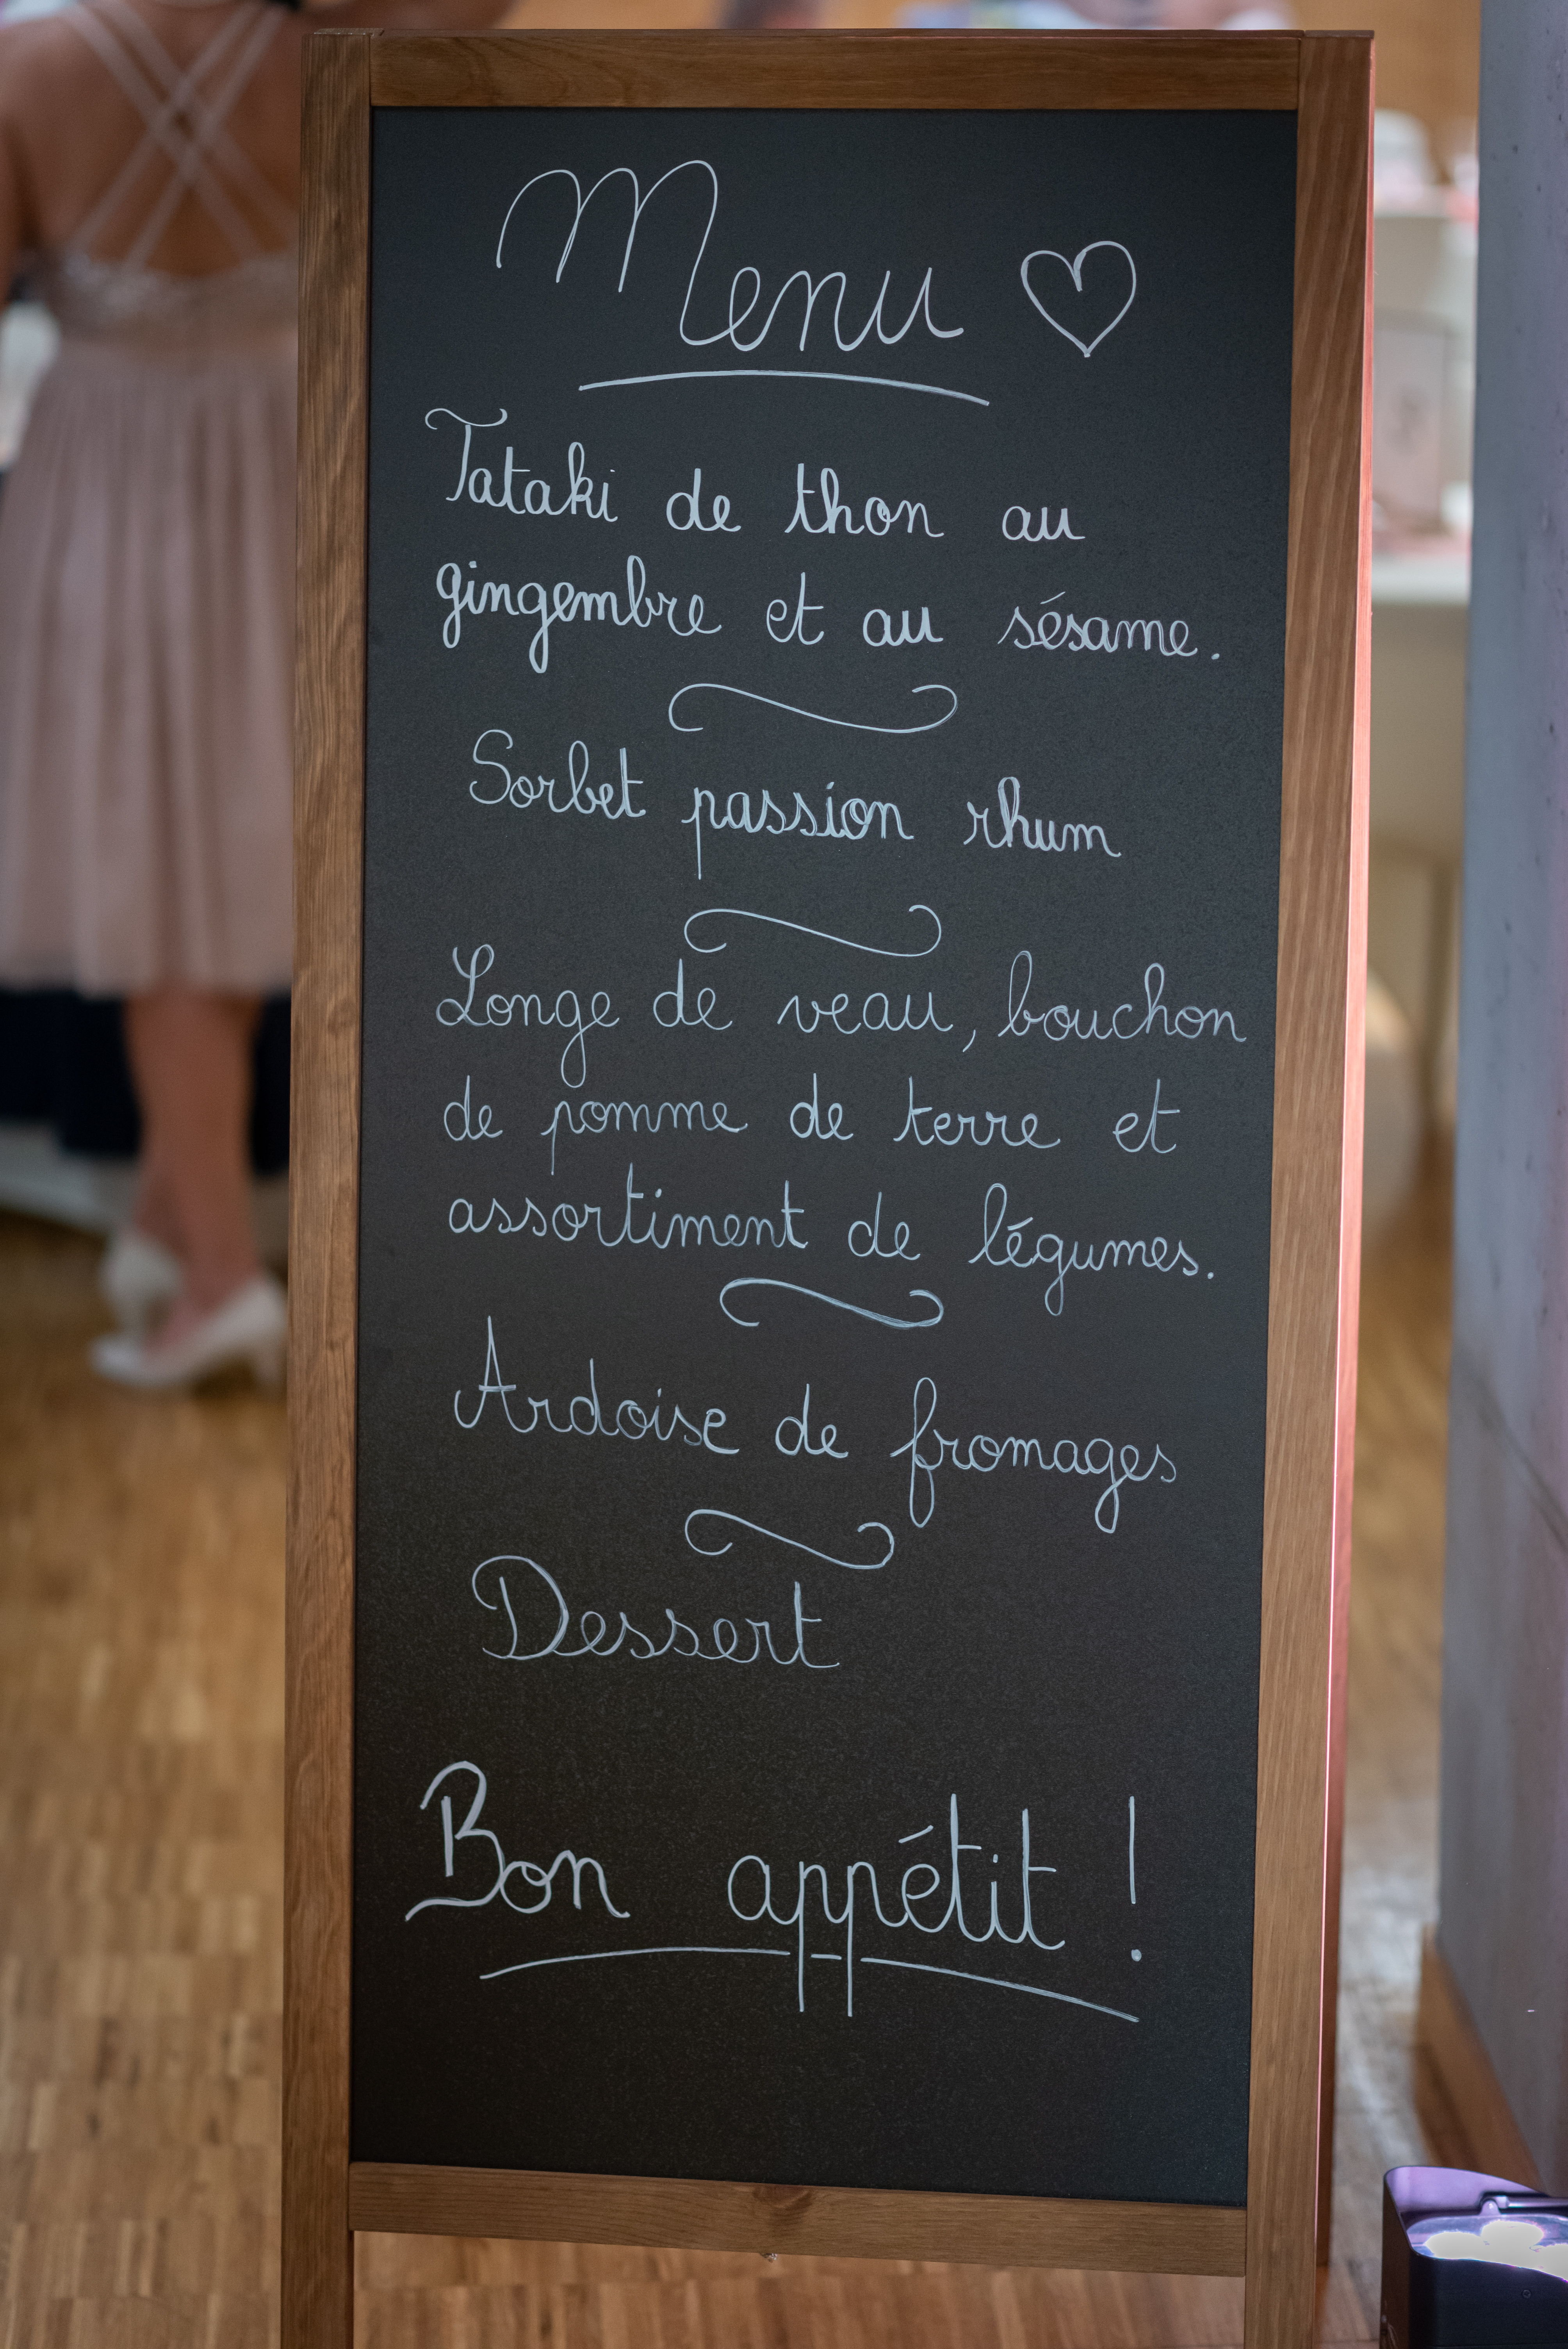 Menu ♡
Tataki de thon au
gingembre et au sésame.
Sorbet passion rhum
Longe de veau, bouchon
de pomme de terre et
assortiment de légumes.
Ardoise de fromages
Dessert
Bon appétit !